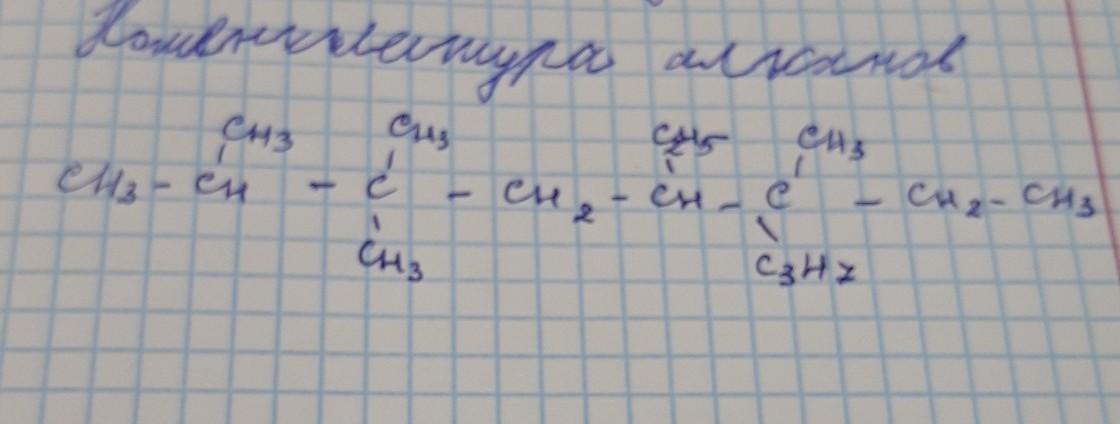 Номенклатура алканов
CH3 CH3 C2H5 CH3
CH3 - CH - C - CH2 - CH - C - CH2 - CH3
CH3 C3H7